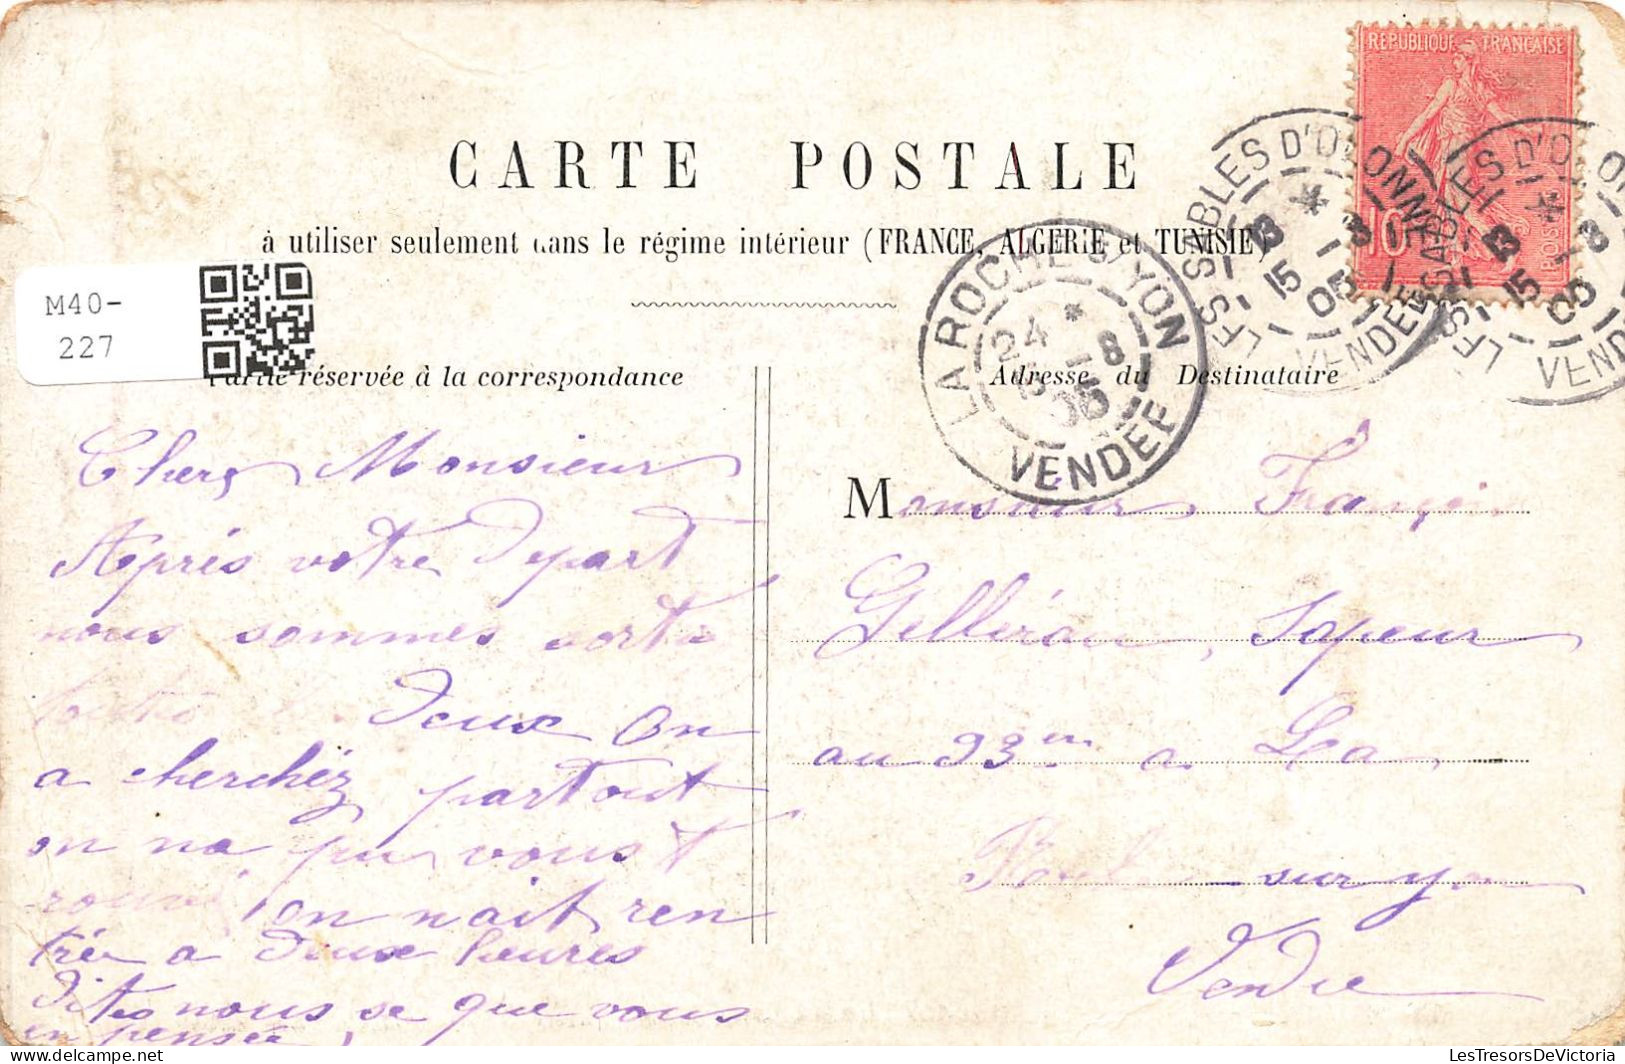 CARTE POSTALE
à utiliser seulement dans le régime intérieur (FRANCE, ALGERIE et TUNISIE)
REPUBLIQUE FRANÇAISE
10
POSTES
LES SABLES D'OLONNE
15
05
VENDEE
LES SABLES D'OLONNE
15
05
VENDEE
LA ROCHE S/ YON
24 *
-8
05
VENDEE
M40-
227
Partie réservée à la correspondance
Chers Monsieur
Après votre Depart
nous sommes sorti
Deux On
a cherchéz partout
on na pu vous t
rouvé on nait ren
trée a deux heures
Dites nous se que vous
en pensée
Adresse du Destinataire
Monsieur Françi
Gelléreau, Sapeur
au 93em a La
Roche sur yon
Vendee
LesTresorsDeVictoria